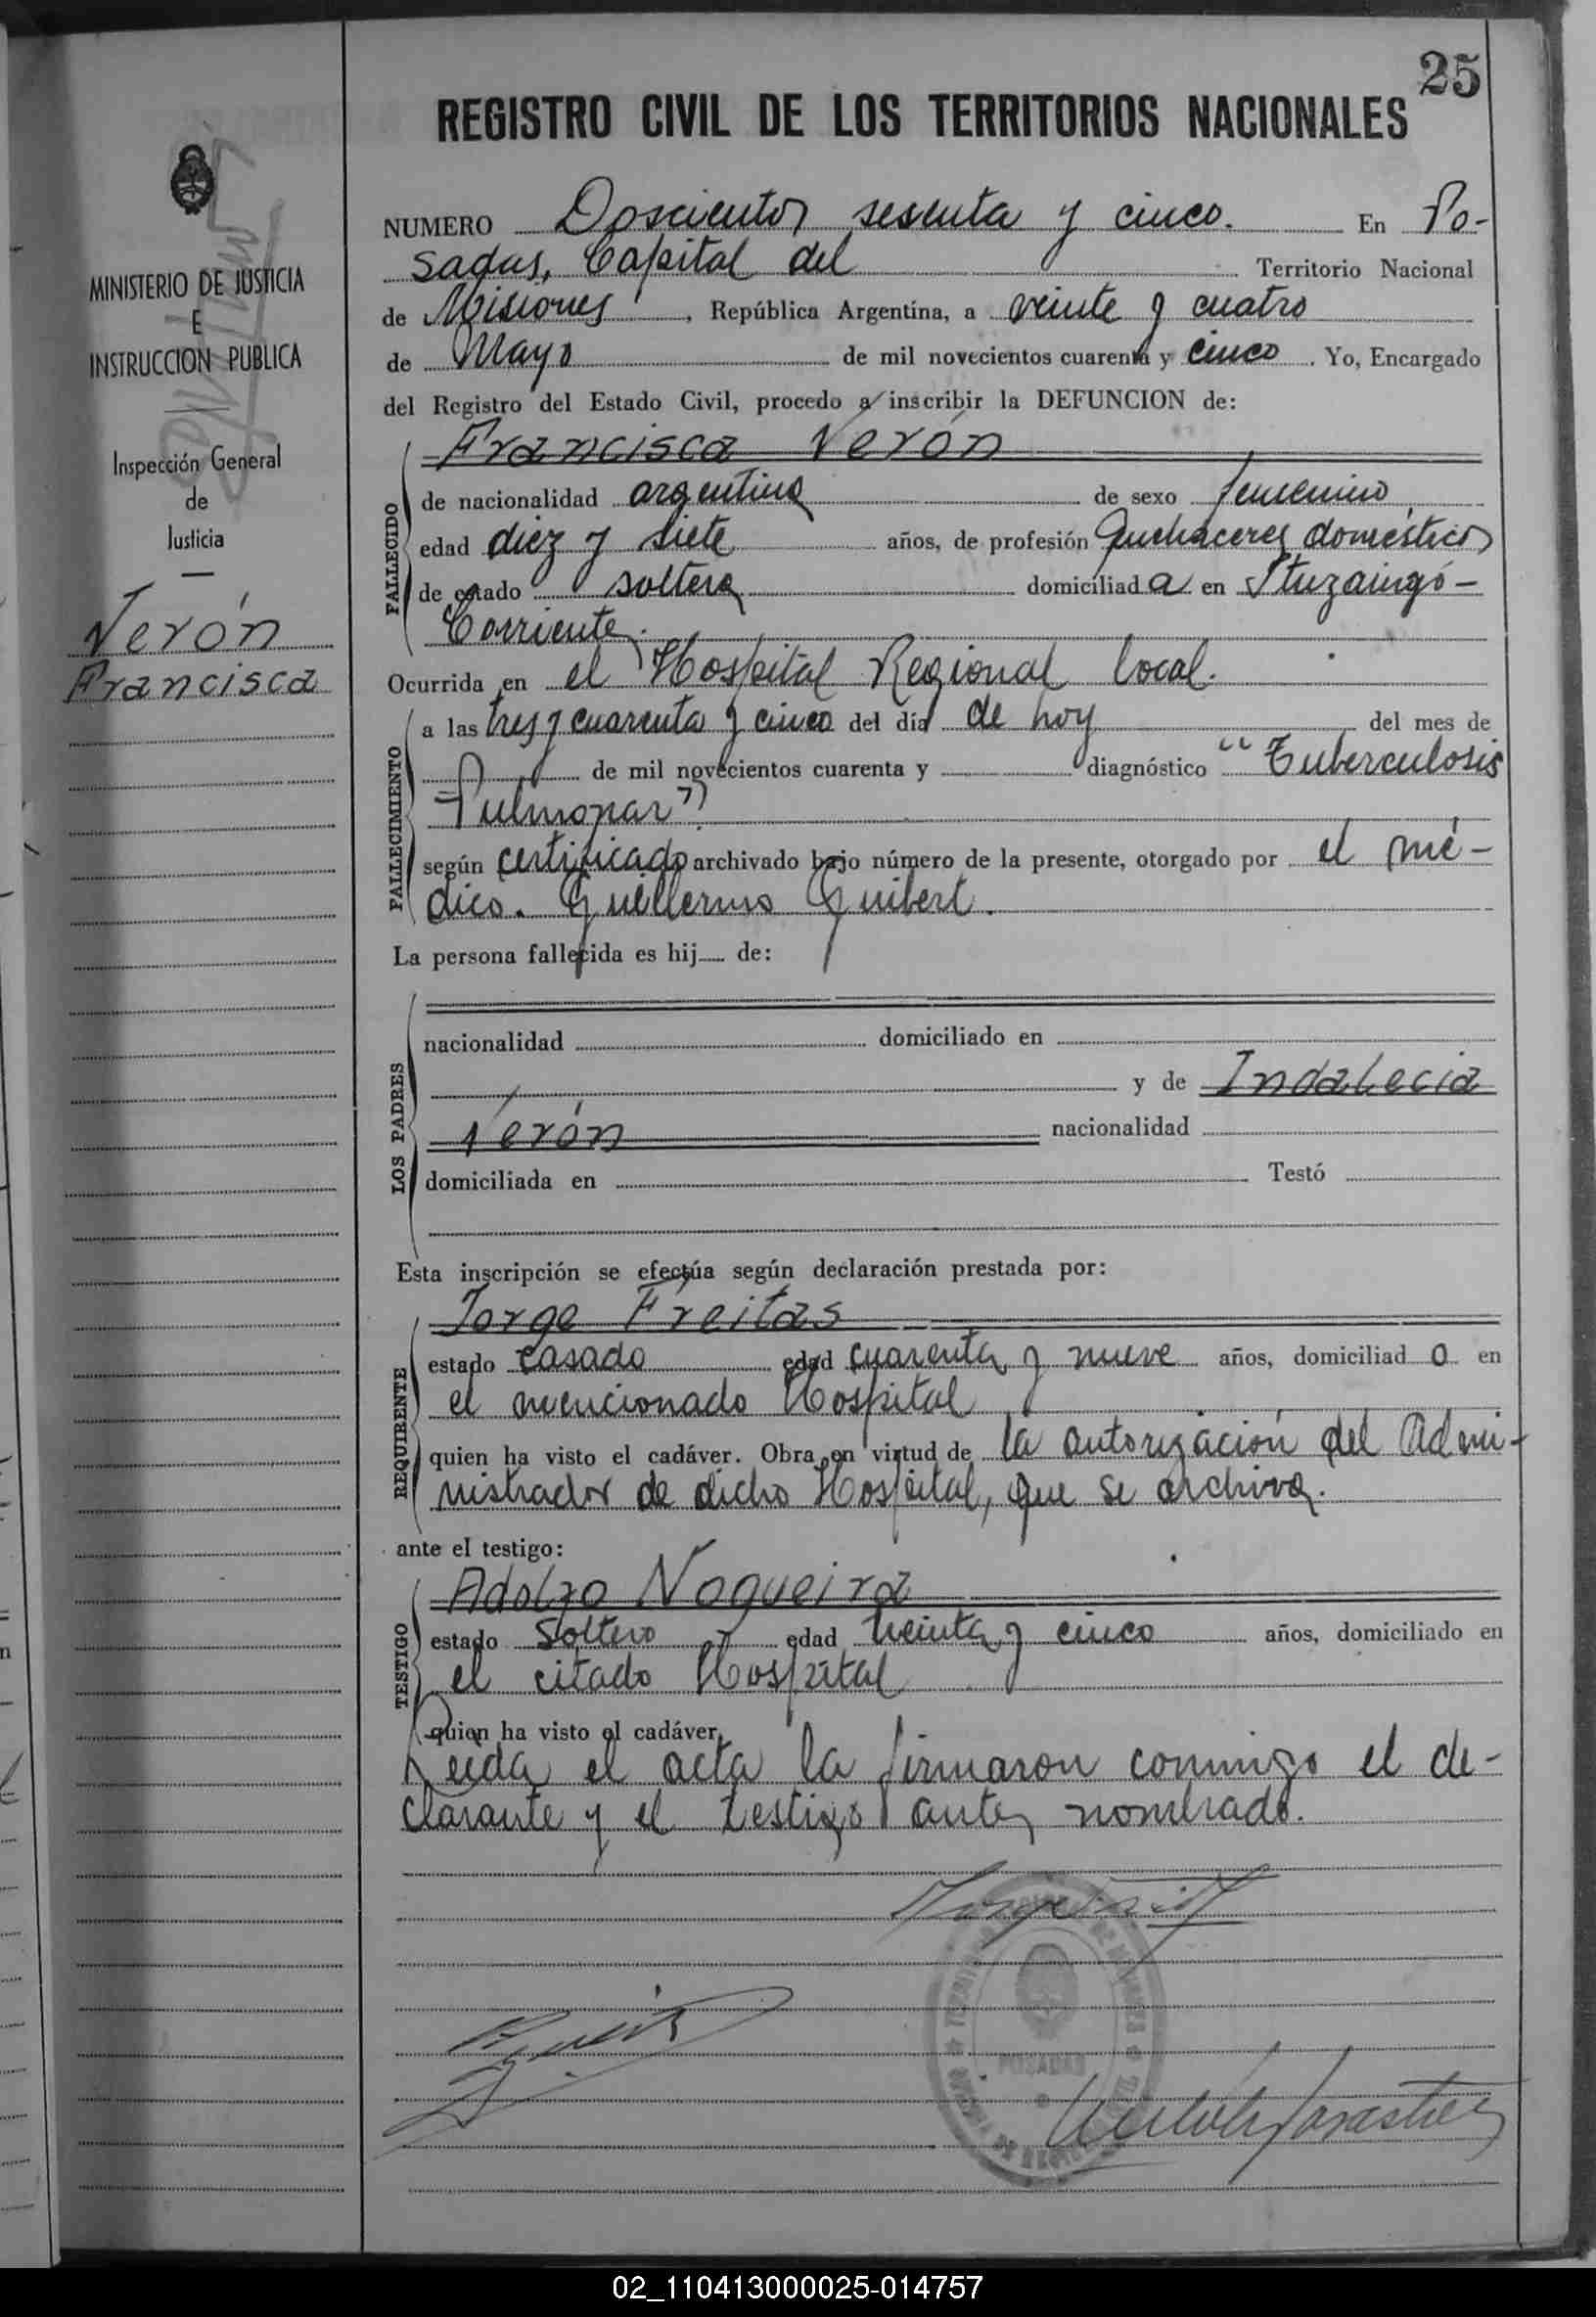 25
REGISTRO CIVIL DE LOS TERRITORIOS NACIONALES
MINISTERIO DE JUSTICIA
E
INSTRUCCION PUBLICA
Inspección General
de
Justicia
Verón
Francisca
NUMERO Doscientos sesenta y cinco. En Po-
sadas, Capital del Territorio Nacional
de Misiones, República Argentina, a veinte y cuatro
de Mayo de mil novecientos cuarenta y cinco. Yo, Encargado
del Registro del Estado Civil, procedo a inscribir la DEFUNCION de:
FALLECIDO
Francisca Verón
de nacionalidad argentina de sexo femenino
edad diez y siete años, de profesión Quehaceres domésticos
de estado soltera domiciliada en Ituzaingó-
Corrientes.
Ocurrida en el Hospital Regional local.
FALLECIMIENTO
a las tres y cuarenta y cinco del día de hoy del mes de
de mil novecientos cuarenta y diagnóstico "Tuberculosis
Pulmonar"
según certificado archivado bajo número de la presente, otorgado por el mé-
dico. Guillermo Guibert.
La persona fallecida es hij de:
LOS PADRES
nacionalidad domiciliado en
y de Indalecia
Verón nacionalidad
domiciliada en Testó
Esta inscripción se efectúa según declaración prestada por:
REQUIRENTE
Jorge Freitas
estado casado edad cuarenta y nueve años, domiciliado en
el mencionado Hospital
quien ha visto el cadáver. Obra en virtud de la autorización del Admi-
nistrador de dicho Hospital, que se archiva.
ante el testigo:
TESTIGO
Adolfo Nogueira
estado Soltero edad treinta y cinco años, domiciliado en
el citado Hospital
quien ha visto el cadáver.
Leida el acta la firmaron conmigo el de-
clarante y el testigo antes nombrado.
POSADAS
02_110413000025-014757